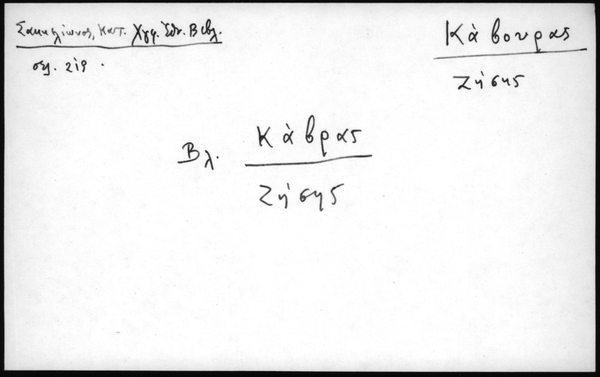 Σακκελίωνος, Κατ. Χγφ. Ἐθν. Βιβλ.
σελ. 219.
Κάβουρας
Ζήσης
Βλ. Κάβρας
Ζήσης